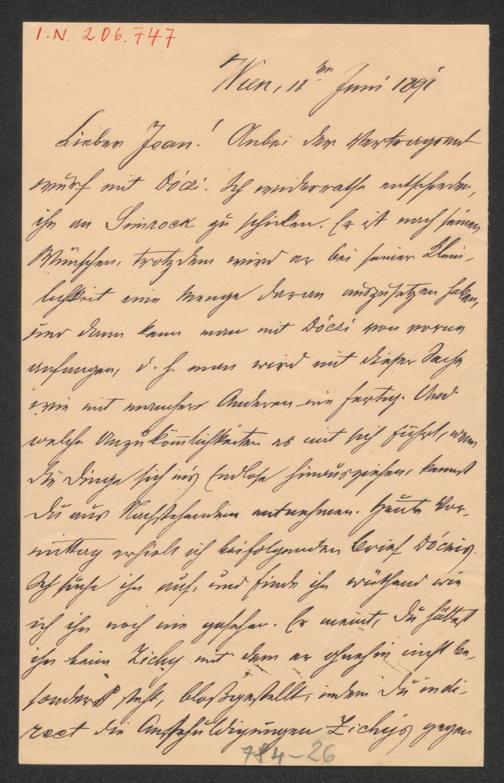 I.N. 206.747
Wien, 12ten Juni 1891
Lieber Jean! Anbei der Vertragsent-
wurf mit Dóczi. Ich widerrathe entschieden,
ihn an Simrock zu schicken. Er ist nach seinen
Wünschen, trotzdem wird er bei seiner Klein-
lichkeit eine Menge daran auszusetzen haben,
und dann kann man mit Dóczi von vorne
anfangen, d. h. man wird mit dieser Sache
wie mit mancher Anderen nie fertig. Und
welche Unzukömlichkeiten es mit sich führt, wenn
die Dinge sich ins Endlose hinausziehen, kannst
Du aus Nachstehendem entnehmen. Heute Vor-
mittag erhielt ich beifolgenden Brief Dóczis.
Ich suche ihn auf, und finde ihn wüthend wie
ich ihn noch nie gesehen. Er meint, Du hättest
ihn beim Zichy mit dem er ohnehin nicht be-
sonders steht, bloßgestellt, indem Du indi-
rect die Anschuldigungen Zichys gegen
784-26